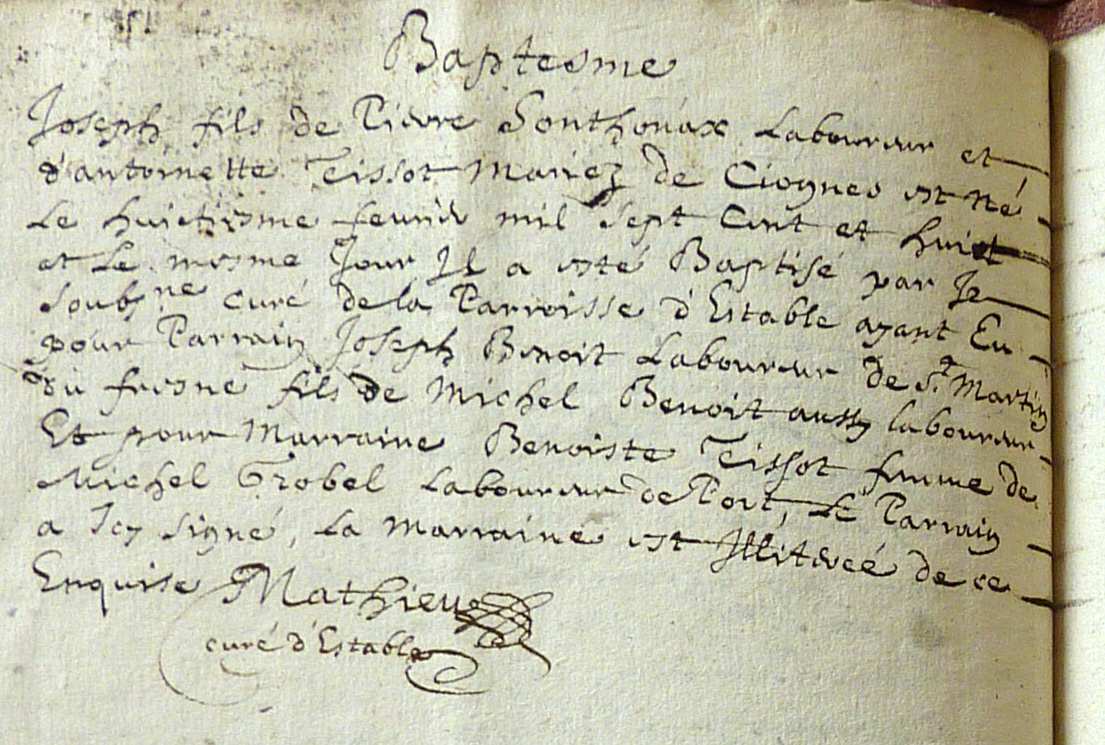 Baptesme
Joseph fils de Pierre Sonthonax Laboureur et
d'antoinette Tissot Mariez de Ciognes est Né
Le huictiesme feurier mil sept Cent et huict
et Le mesme Jour Il a esté Baptisé par Je
Soubsne curé de la Parroisse d'Estable ayant Eu
pour Parrain Joseph Benoit Laboureur de St Martin
du fresne fils de Michel Benoit aussy laboureur
Et pour Marraine Benoiste Tissot femme de
Michel Grobel Laboureur de Port, Le Parrain
a Icy signé, La Marraine est Illiterée de ce
Enquise Mathieu
curé d'Estable